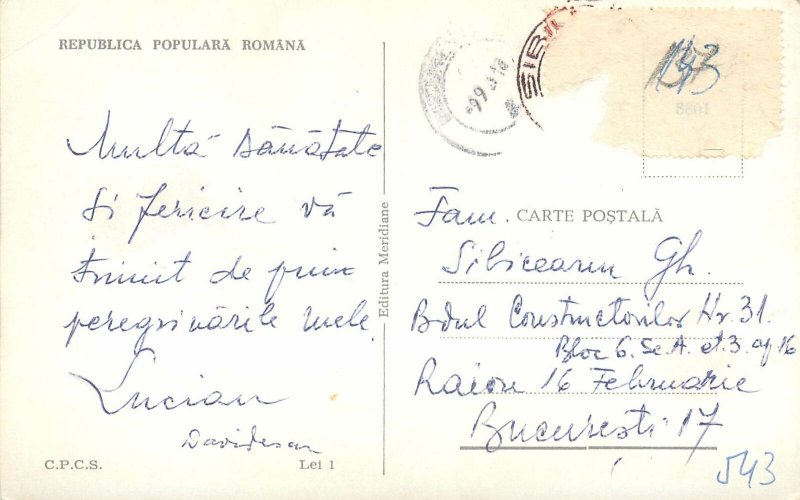 REPUBLICA POPULARĂ ROMÂNĂ
Multă sănătate
și fericire vă
trimit de prin
peregrinările mele.
Lucian
Davidescu
C.P.C.S.
Lei 1
Editura Meridiane
SIBIU
143
8801
CARTE POȘTALĂ
Fam.
Sibiceanu Gh.
B-dul Constructorilor Nr. 31.
Bloc 6. Sc. A. et. 3. ap 16
Raion 16 Februarie
București 17
543